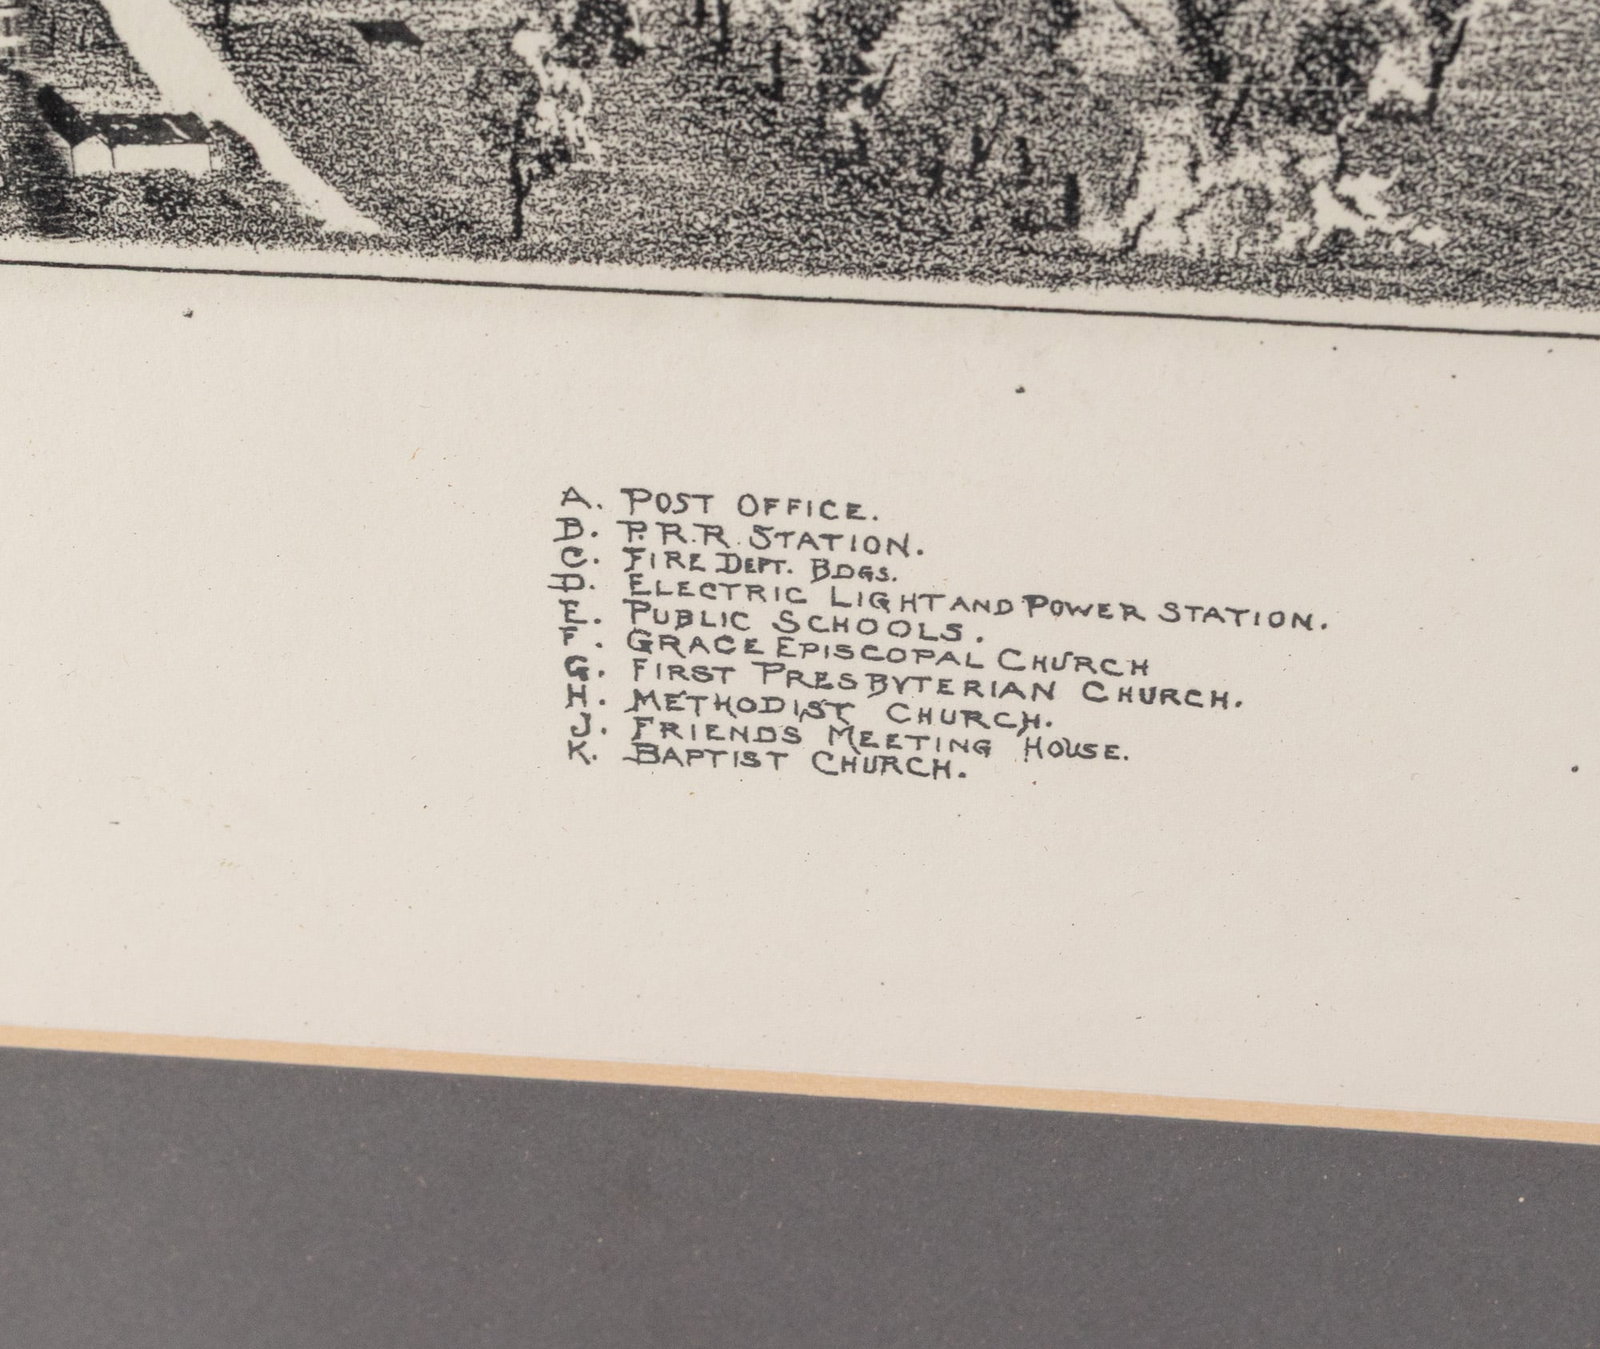 A. POST OFFICE.
B. P.R.R. STATION.
C. FIRE DEPT. BDGS.
D. ELECTRIC LIGHT AND POWER STATION.
E. PUBLIC SCHOOLS.
F. GRACE EPISCOPAL CHURCH
G. FIRST PRESBYTERIAN CHURCH.
H. METHODIST CHURCH.
J. FRIENDS MEETING HOUSE.
K. BAPTIST CHURCH.